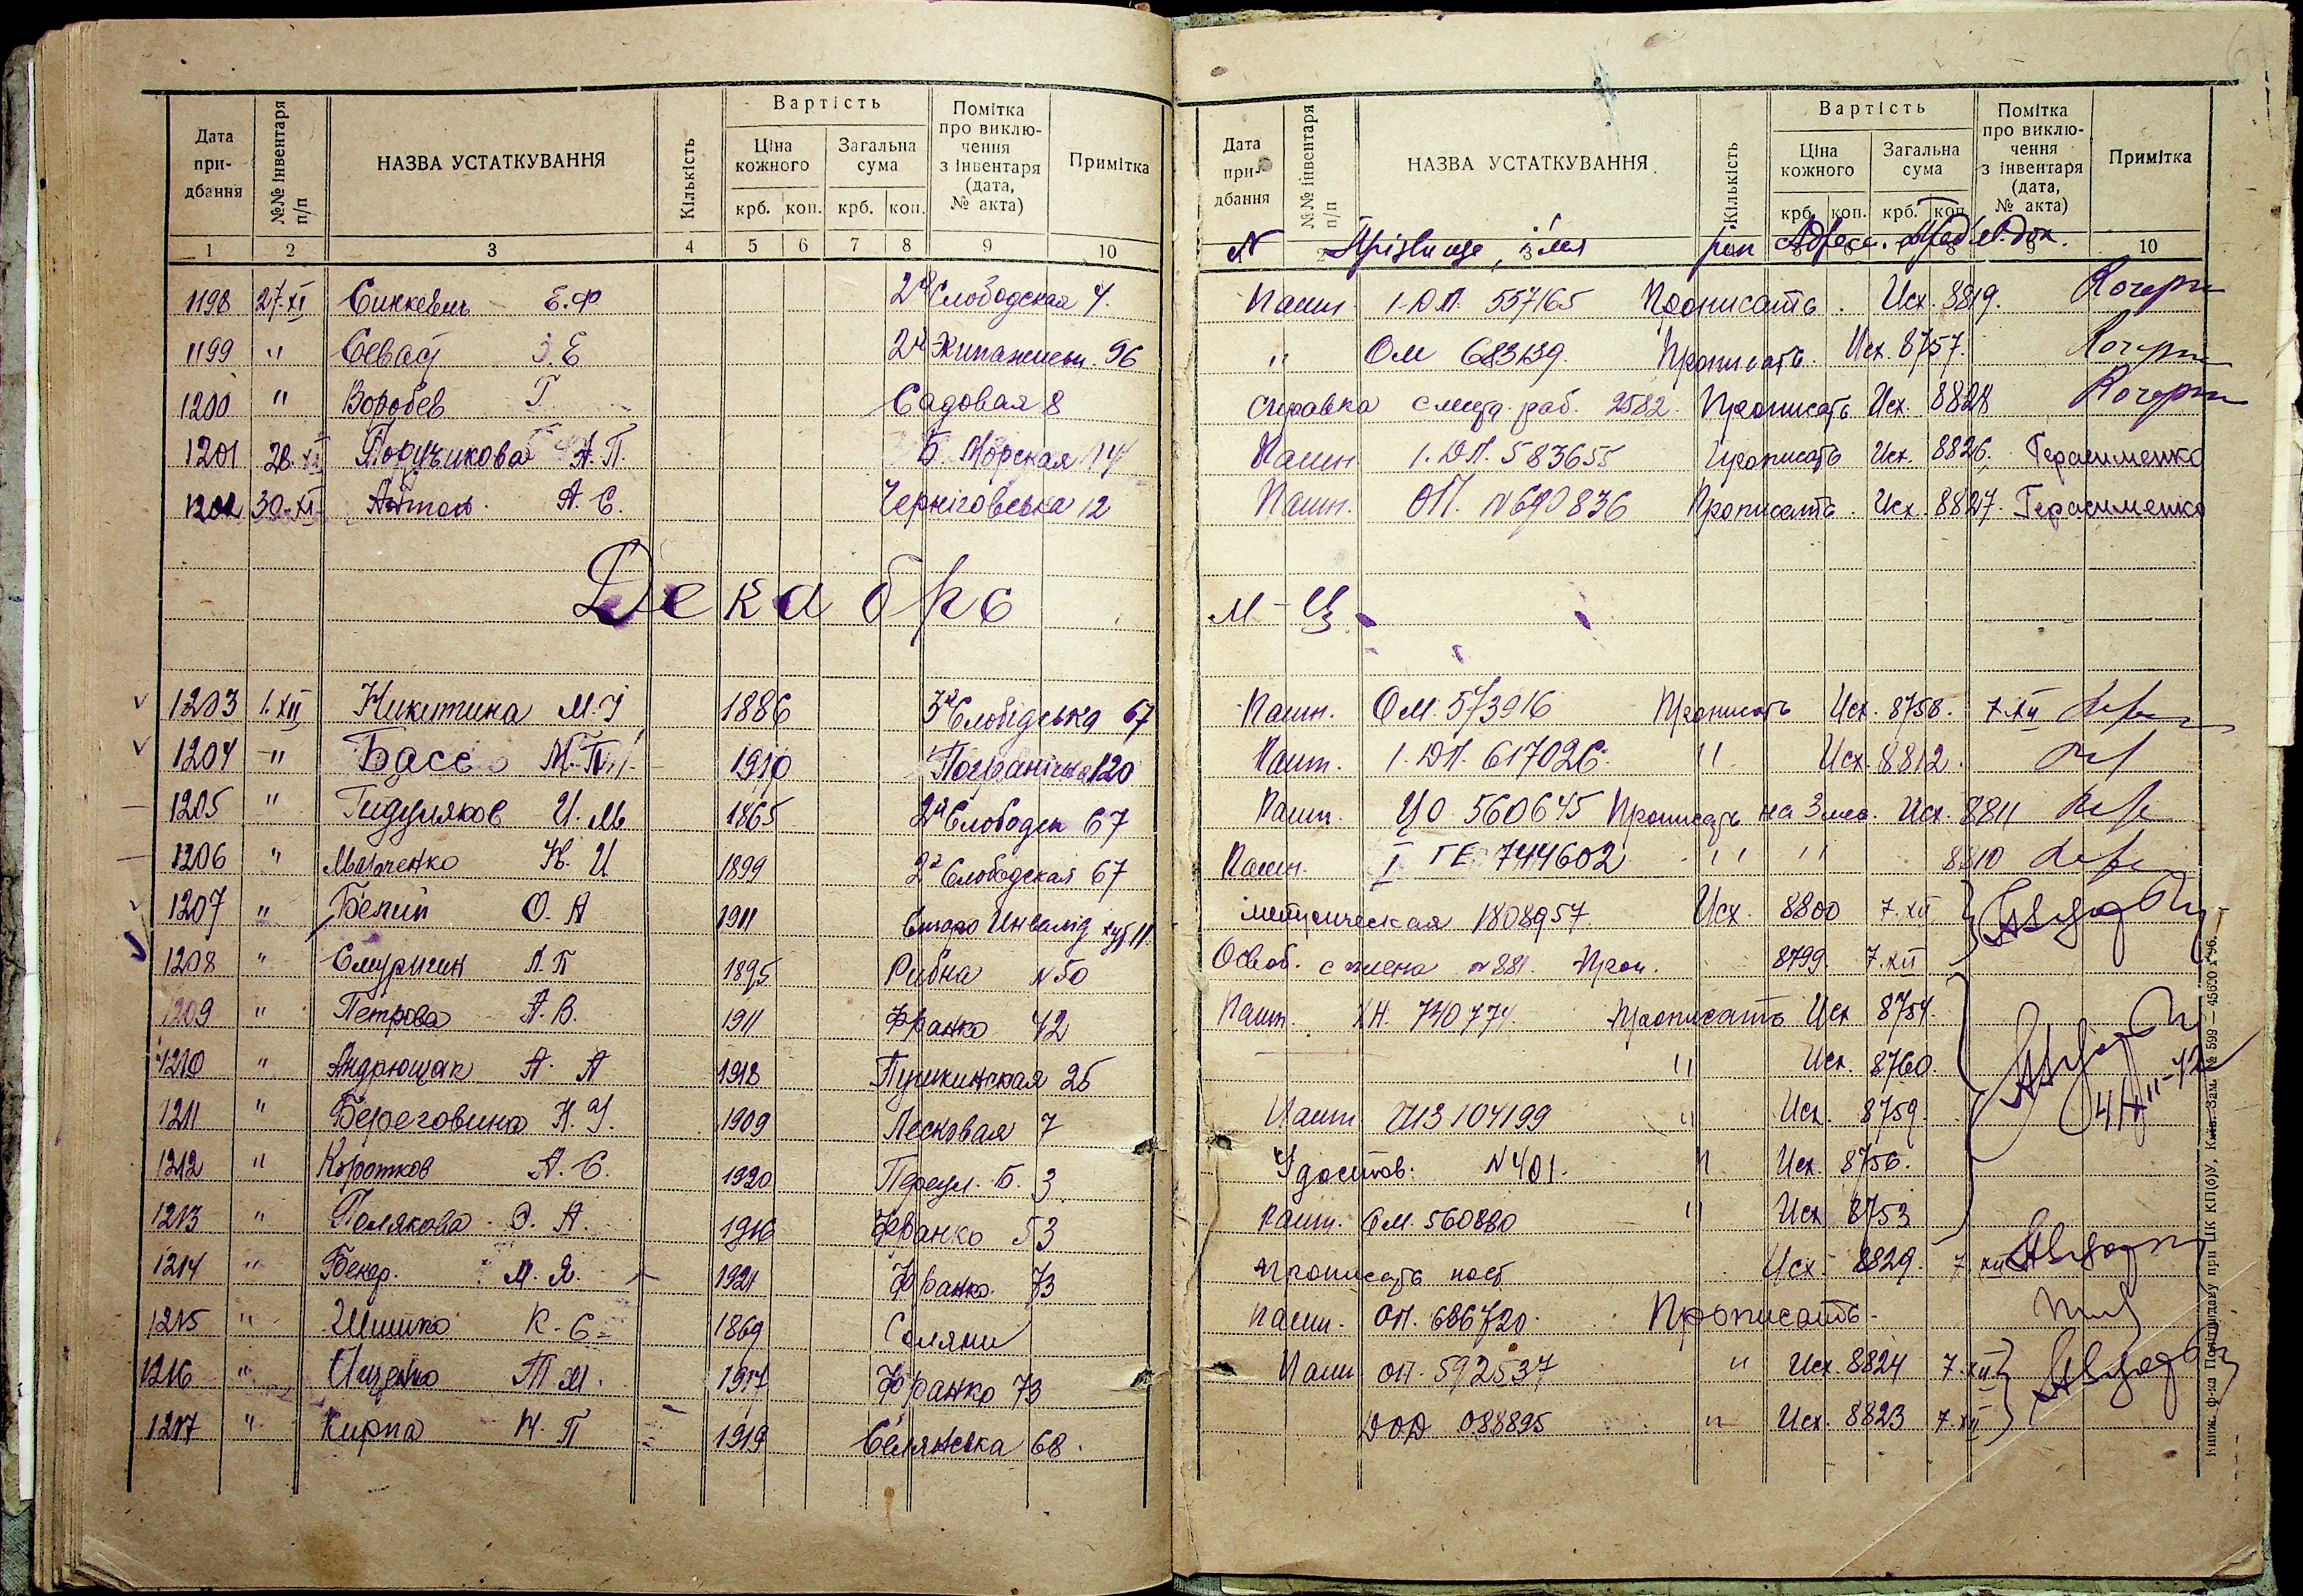 Дата при-дбання №№ інвентаря п/п НАЗВА УСТАТКУВАННЯ Кількість Вартість Ціна кожного крб. коп. Загальна сума крб. коп. Помітка про виклю-чення з інвентаря (дата, № акта) Примітка
1 2 3 4 5 6 7 8 9 10
1198 27.XI Синкевич Е.Ф 2я Слободская 4.
1199 " Севас З.Е 96
1200 " Воробев Г Садовая 8
1201 28.XI Поручикова А.П. Б. Морская 14
1202 30.XI Антон. А.С. Чернiговська 12
Декабрь
1203 1.XII Никитина М.I 1886 3я Слобiдська 67
1204 " Басс М.П. 1910 Погранична 120
1205 " Гидуляков И.М 1865 2я Слободск 67
1206 " К. И 1899 2я Слободская 67
1207 " Белий О. А 1911 Инвалiд хут 11.
1208 " Смуригин А.П 1895 Рибна N 50
1209 " Петрова А.В. 1911 Франко 42
1210 " Андрющак А. А 1918 Пушкинская 25
1211 " Береговина Н.I. 1909 Лесковая 7
1212 " Коротков А.С. 1920 Б. 3
1213 " Полякова Э. А. 1916 Франко 53
1214 " Бекер. М.Я. 1921 Франко. 73
1215 " Шишко К.С 1869 Саляни
1216 " Ищенко Т М. 1917 Франко 73
1217 " Кирпа Н.П 1919 68.
Дата при-дбання №№ інвентаря п/п НАЗВА УСТАТКУВАННЯ Кількість Вартість Ціна кожного крб. коп. Загальна сума крб. коп. Помітка про виклю-чення з інвентаря (дата, № акта) Примітка
N Прiзвище, iмя рiк Адреса. док. 10
Пашп. 1.ДЛ. 557165 Прописать. Исх. 8819.
" ОМ 683139. Прописать. Исх. 8757.
справка с места раб. 2582. Прописать Исх. 8828
Пашп 1.ДЛ. 583655 Прописать Исх. 8826. Герасименко
Пашп. ОП. N690836 Прописать. Исх. 8827. Герасименко
М-Ц
Пашп. ОМ. 573916 Прописать Исх. 8758. 7.XII
Пашп. 1.ДЛ. 617026. " Исх. 8812.
Пашп. ЦО. 560645 Прописать на 3 мес. Исх. 8811
Пашп. I ГЕ 744602 " " 8810
метрическая 1808957. Исх. 8800 7.XII
Освоб. с плена N881. Проп. 8799. 7.XII
Пашп. ХН. 740774. Прописать Исх 8754.
" Исх. 8760.
Пашп ЦИЗ 104199 " Исх. 8759.
Удостов. N401. " Исх. 8756.
Пашп. ОМ. 560880 " Исх 8753
прописать пост. Исх. 8829. 7 XII
пашп. ОП. 686720. Прописать.
Пашп ОП. 592537 " Исх. 8824 7.XII
ДОД 088895 " Исх. 8823 7.XII
Книж. ф-ка Політвидаву при ЦК КП(б)У, Київ. Зам. № 599 — 45630 х 96.